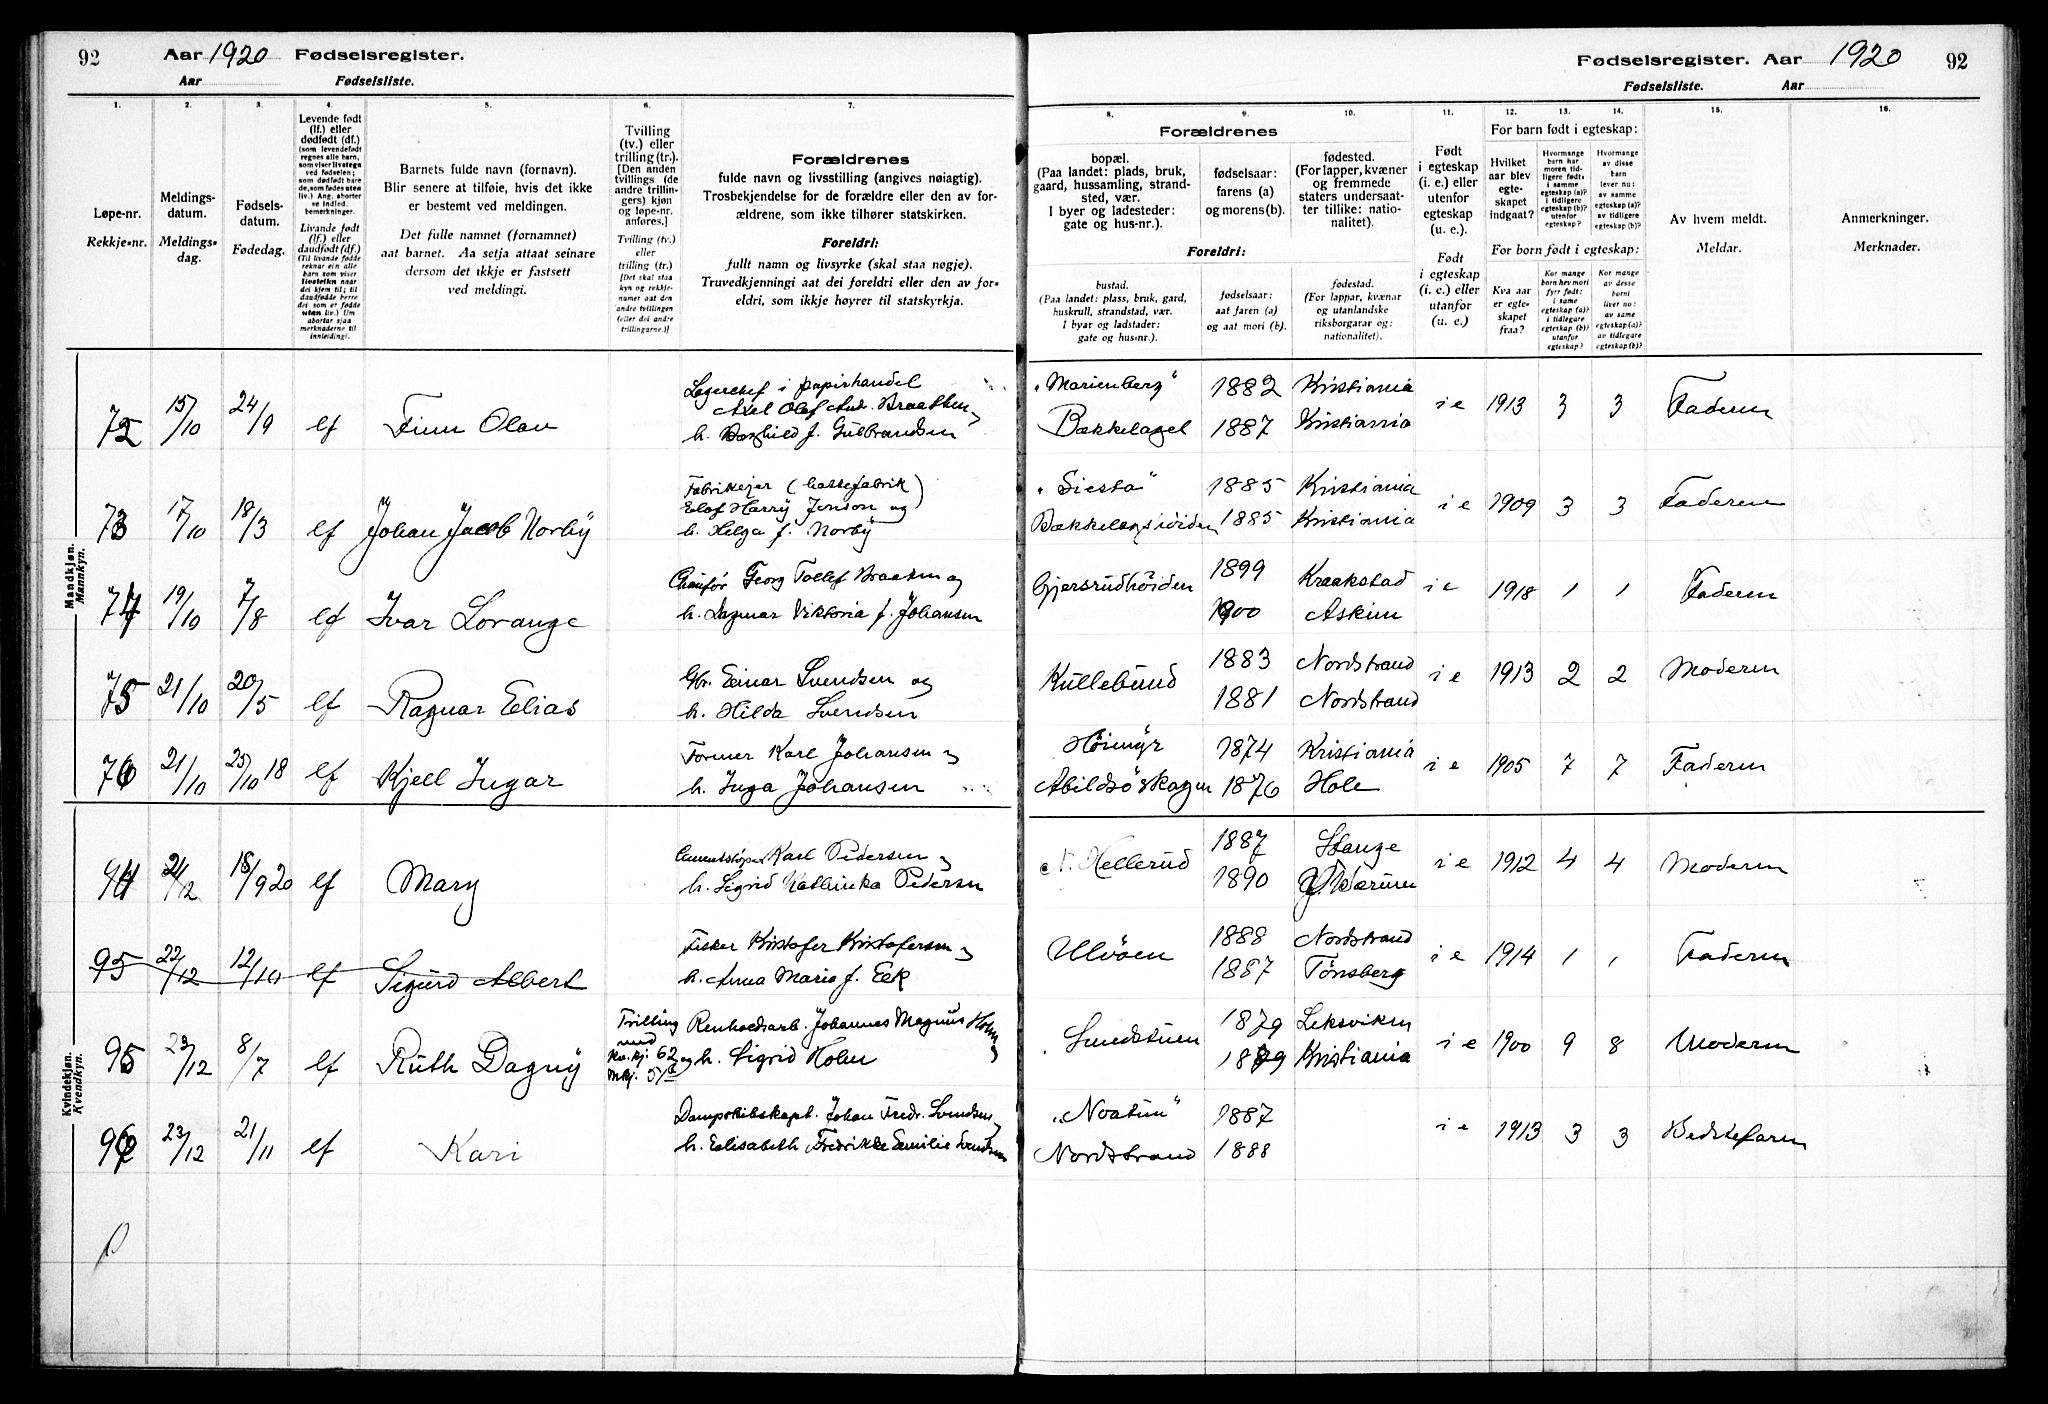 92 Aar 1920 Fødselsregister.
Aar Fødselsliste.
Fødselsregister. Aar 1920 92
Fødselsliste. Aar
1. 2. 3. 4. 5. 6. 7.
Løpe-nr.
Rekkje-nr.
Meldings-
datum.
Meldings-
dag.
Fødsels-
datum.
Fødedag.
Levende født
(lf.) eller
dødfødt (df.)
(som levendefødt
regnes alle barn,
som viser livstegn
ved fødselen;
som dødfødt bare
de, som fødes uten
liv.) Ang. aborter
se indled.
bemerkninger.
Livande født
(lf.) eller
daudfødt (df.)
(Til livande fødde
reknar ein alle
barn som viser
livsteikn naar
dei kjem til; til
daudfødde berre
dei som er fødde
utan liv.) Um
abortar sjaa
merknaderne til
innleiding).
Barnets fulde navn (fornavn).
Blir senere at tilføie, hvis det ikke
er bestemt ved meldingen.
Det fulle namnet (fornamnet)
aat barnet. Aa setja attaat seinare
dersom det ikkje er fastsett
ved meldingi.
Tvilling
(tv.) eller
trilling (tr.).
[Den anden
tvillings (de
andre trillin-
gers) kjøn
og løpe-nr.
anføres.]
Tvilling (tv.)
eller
trilling (tr.)
[Det skal staa
kyn og rekkje-
numer aat den
andre tvillingen
(eller dei andre
trillingarne.)]
Forældrenes
fulde navn og livsstilling (angives nøiagtig).
Trosbekjendelse for de forældre eller den av for-
ældrene, som ikke tilhører statskirken.
Foreldri:
fullt namn og livsyrke (skal staa nøgje).
Truvedkjenningi aat dei foreldri eller den av for-
eldri, som ikkje høyrer til statskyrkja.
8. 9. 10. 11. 12. 13. 14. 15. 16.
Forældrenes
bopæl.
(Paa landet: plads, bruk,
gaard, hussamling, strand-
sted, vær.
I byer og ladesteder:
gate og hus-nr.).
fødselsaar:
farens (a)
og morens (b).
fødested.
(For lapper, kvæner
og fremmede
staters undersaat-
ter tillike: natio-
nalitet).
Foreldri:
bustad.
(Paa landet: plass, bruk, gard,
huskrull, strandstad, vær.
I byar og ladstader:
gate og hus-nr.).
fødselsaar:
aat faren (a)
og aat mori (b).
fødestad.
(For lappar, kvænar
og utanlandske
riksborgarar og:
nationalitet).
Født
i egteskap
(i. e.) eller
utenfor
egteskap
(u. e.).
Født
i egteskap
(i. e.) eller
utanfor
(u. e.)
For barn født i egteskap:
Hvilket
aar blev
egte-
skapet
indgaat?
Hvormange
barn har
moren tid-
ligere født:
i samme
egteskap (a)?
i tidligere
egteskap (b)?
utenfor
egteskap?
Hvormange
av disse
barn
lever nu:
av samme
egteskap (a)?
av tidligere
egteskap (b)?
For born født i egteskap:
Kva aar
er egte-
skapet
fraa?
Kor mange
born hev mori
fyrr født:
i same
egteskap (a)?
i tidlegare
egteskap (b)?
utanfor
egteskap?
Kor mange
av desse
borni
liver no:
av same
egteskap (a)?
av tidlegare
egteskap (b)?
Av hvem meldt.
Meldar.
Anmerkninger.
Merknader.
Mandkjøn.
Mannkyn.
72 15/10 24/9 lf Finn Olav
Lagerchef i papirhandel
Axel Olaf And. Braathen
h. Borghild f. Gulbrandsen
"Marienberg" 1882 Kristiania
Bækkelaget 1887 Kristiania
i e 1913 3 3 Faderen
73 17/10 18/3 lf Johan Jacob Norby
Fabrikejer (hattefabrik)
Elof Harry Jenson og
h. Helga f. Norby
"Siesta" 1885 Kristiania
Bækkelagshøiden 1885 Kristiania
i e 1909 3 3 Faderen
74 19/10 7/8 lf Ivar Lorange
Chauffør Georg Tollef Braaten og
h. Dagmar Viktoria f. Johansen
Gjersrudhøiden 1899 Kraakstad
1900 Askim
i e 1918 1 1 Faderen
75 21/10 20/5 lf Ragnar Elias
Gbr. Einar Svendsen og
h. Hilda Svendsen
Kullebund 1883 Nordstrand
1881 Nordstrand
i e 1913 2 2 Moderen
76 21/10 25/10 18 lf Kjell Ingar
Former Karl Johansen
h. Inga Johansen
Høimyr 1874 Kristiania
Abildsøskogen 1876 Hole
i e 1905 7 7 Faderen
Kvindekjøn.
Kvendkyn.
94 24/12 18/9 20 lf Mary
Cementstøper Karl Pedersen
h. Sigrid Kathinka Pedersen
N. Hellerud 1887 Stange
1890
i e 1912 4 4 Moderen
95 22/12 12/10 lf Sigurd Albert
Fisker Kristofer Kristofersen
h. Anna Marie f. Eek
Ulvøen 1888 Nordstrand
1887 Tønsberg
i e 1914 1 1 Faderen
95 23/12 8/7 lf Ruth Dagny
Trilling
med
kv.kj. 62 og
mkj.
Renholdsarb. Johannes Magnus Holm
h. Sigrid Holm
Sundstuen 1879 Leksviken
1879 Kristiania
i e 1900 9 8 Moderen
96 23/12 21/11 lf Kari
Dampskibskapt. Johan Fredr. Svendsen
h. Elisabeth Fredrikke Emilie Svendsen
"Noatun" 1887
Nordstrand 1888
i e 1913 3 3 Bedstefaren